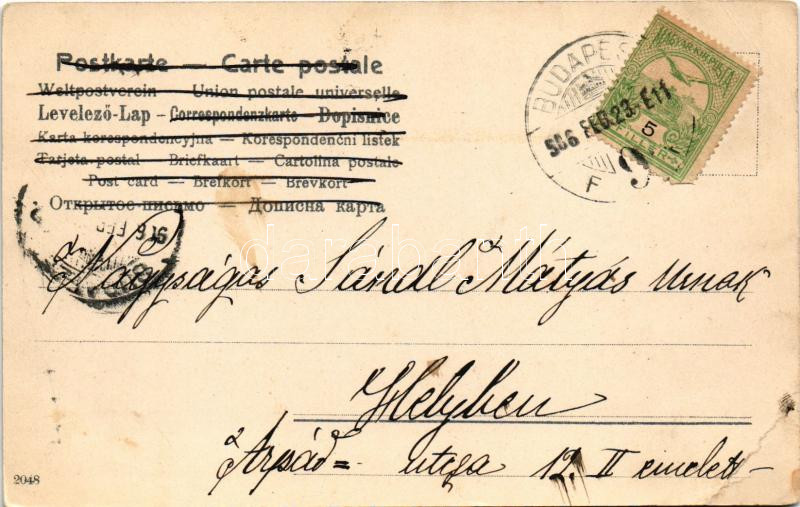 Postkarte — Carte postale
Weltpostverein — Union postale universelle
Levelező-Lap — Correspondenzkarte — Dopisnice
Karta korespondencyjna — Korespondenční lístek
Tarjeta postal — Briefkaart — Cartolina postale
Post card — Brefkort — Brevkort
Открытое письмо — Дописна карта
BUDAPEST
906 FEB. 23. E 11
F 9
MAGYAR KIR. POSTA
5
FILLÉR
Nagyságos Sándl Mátyás urnak
Helyben
Árpád = utcza 12. II emelet -
2048
darabanth